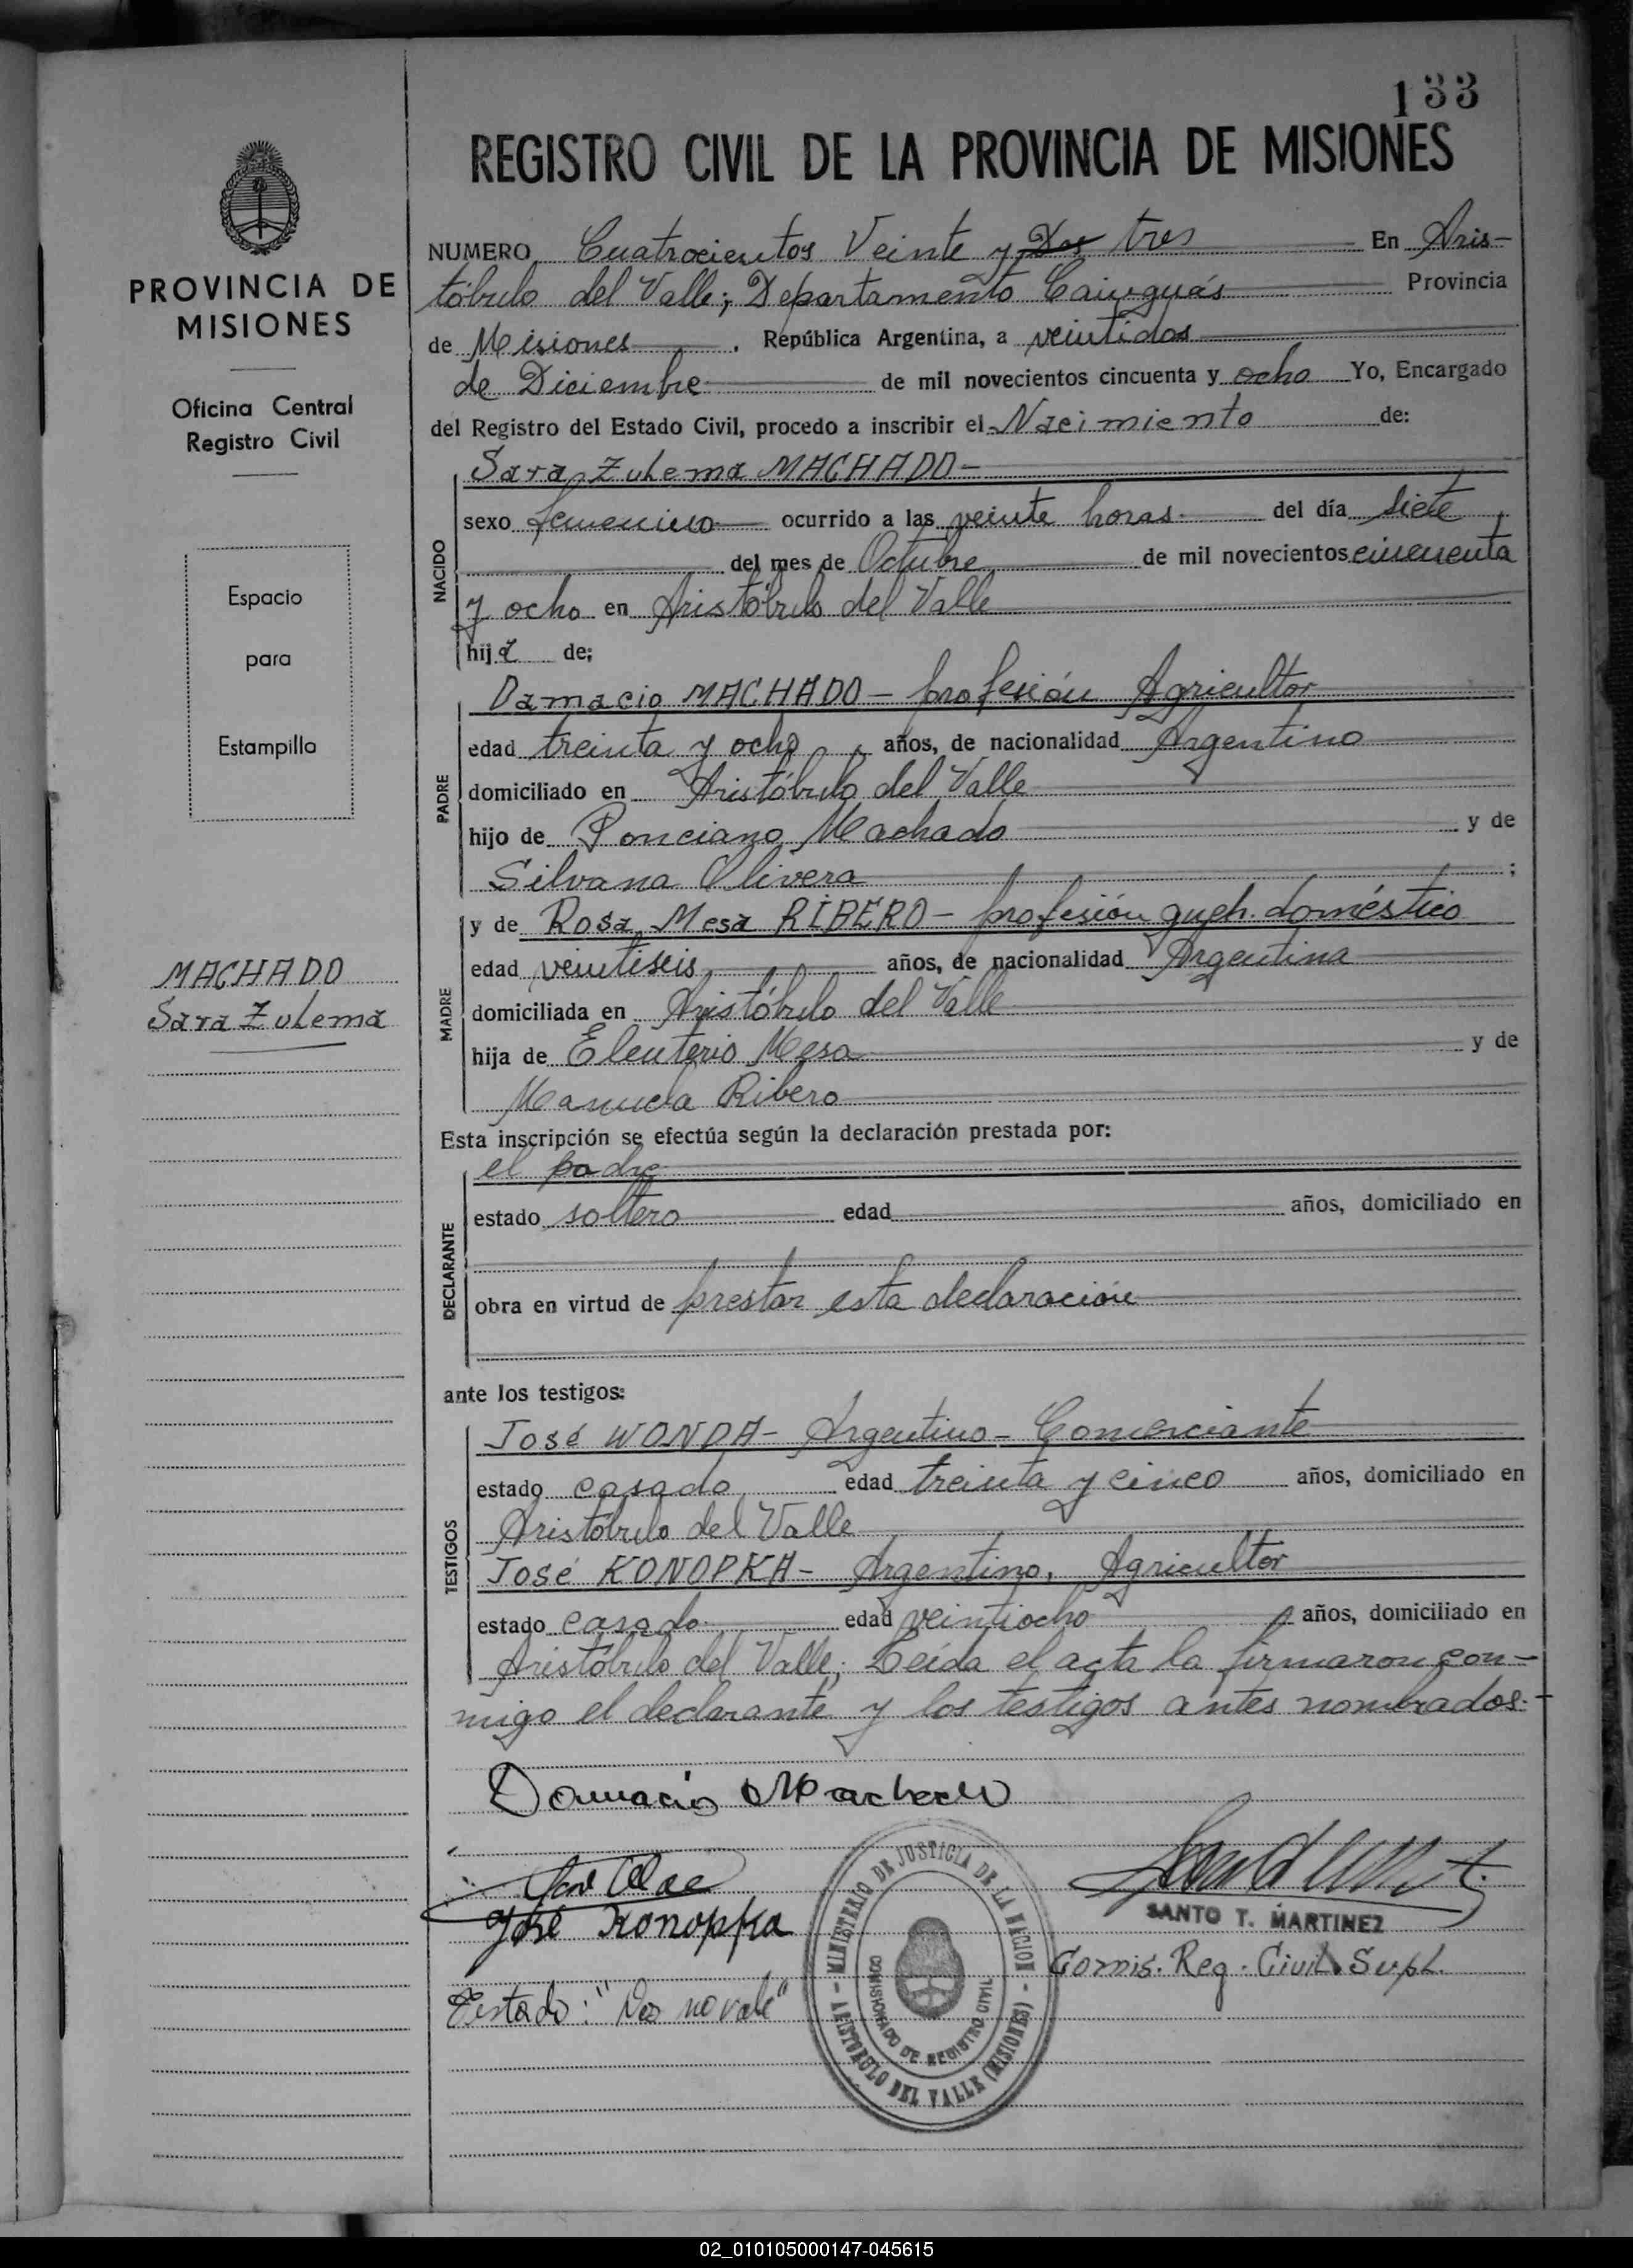 133
REGISTRO CIVIL DE LA PROVINCIA DE MISIONES
PROVINCIA DE
MISIONES
Oficina Central
Registro Civil
Espacio
para
Estampilla
MACHADO
Sara Zulema
NUMERO Cuatrocientos Veinte y Dos tres En Aris-
tóbulo del Valle; Departamento Cainguás Provincia
de Misiones. República Argentina, a veintidos
de Diciembre de mil novecientos cincuenta y ocho Yo, Encargado
del Registro del Estado Civil, procedo a inscribir el Nacimiento de:
NACIDO
Sara Zulema MACHADO-
sexo femenino ocurrido a las veinte horas del día siete
del mes de Octubre de mil novecientos cincuenta
y ocho en Aristóbulo del Valle
hija de;
PADRE
Damacio MACHADO- profesión Agricultor
edad treinta y ocho años, de nacionalidad Argentino
domiciliado en Aristóbulo del Valle
hijo de Ponciano Machado y de
Silvana Olivera ;
MADRE
y de Rosa Mesa RIBERO- profesión queh. doméstico
edad veintiseis años, de nacionalidad Argentina
domiciliada en Aristóbulo del Valle
hija de Eleuterio Mesa y de
Manuela Ribero
Esta inscripción se efectúa según la declaración prestada por:
DECLARANTE
el padre
estado soltero edad años, domiciliado en
obra en virtud de prestar esta declaración
ante los testigos:
TESTIGOS
José WONDA- Argentino- Comerciante
estado casado edad treinta y cinco años, domiciliado en
Aristóbulo del Valle
José KONOPKA- Argentino, Agricultor
estado casado edad veintiocho años, domiciliado en
Aristóbulo del Valle; Leída el acta la firmaron con-
migo el declarante y los testigos antes nombrados.-
Damacio Machado
José Konopka
SANTO T. MARTINEZ
Comis. Reg. Civil Supl.
Testado: "Dos no vale"
- MINISTERIO DE JUSTICIA DE LA NACION -
ARISTOBULO DEL VALLE (MISIONES)
COMISIONADO DE REGISTRO CIVIL
02_010105000147-045615